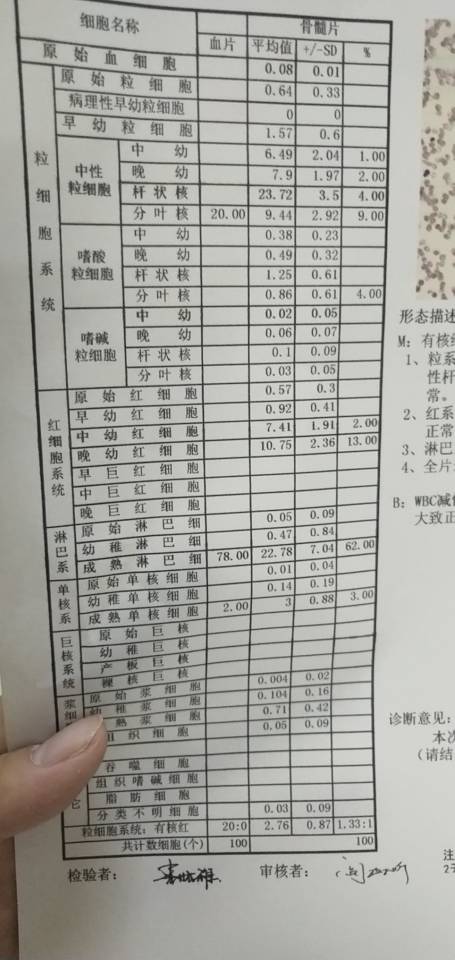 细胞名称 血片 骨髓片
平均值 +/-SD %
原始血细胞 0.08 0.01
粒细胞系统
原始粒细胞 0.64 0.33
病理性早幼粒细胞 0 0
早幼粒细胞 1.57 0.6
中性粒细胞
中幼 6.49 2.04 1.00
晚幼 7.9 1.97 2.00
杆状核 23.72 3.5 4.00
分叶核 20.00 9.44 2.92 9.00
嗜酸粒细胞
中幼 0.38 0.23
晚幼 0.49 0.32
杆状核 1.25 0.61
分叶核 0.86 0.61 4.00
嗜碱粒细胞
中幼 0.02 0.05
晚幼 0.06 0.07
杆状核 0.1 0.09
分叶核 0.03 0.05
红细胞系统
原始红细胞 0.57 0.3
早幼红细胞 0.92 0.41
中幼红细胞 7.41 1.91 2.00
晚幼红细胞 10.75 2.36 13.00
早巨红细胞
中巨红细胞
晚巨红细胞
淋巴系
原始淋巴细 0.05 0.09
幼稚淋巴细 0.47 0.84
成熟淋巴细 78.00 22.78 7.04 62.00
单核系
原始单核细胞 0.01 0.04
幼稚单核细胞 0.14 0.19
成熟单核细胞 2.00 3 0.88 3.00
巨核系统
原始巨核
幼稚巨核
产板巨核
裸核巨核
浆细
原始浆细胞 0.004 0.02
幼稚浆细胞 0.104 0.16
熟浆细胞 0.71 0.42
组织细胞 0.05 0.09
它
吞噬细胞
组织嗜碱细胞
脂肪细胞
分类不明细胞 0.03 0.09
粒细胞系统：有核红 20:0 2.76 0.87 1.33:1
共计数细胞(个) 100 100
检验者： 审核者：
形态描述
M：有核细
1、粒系
性杆
常。
2、红系
正常
3、淋巴
4、全片
B：WBC减
大致正
诊断意见：
本次
(请结
注